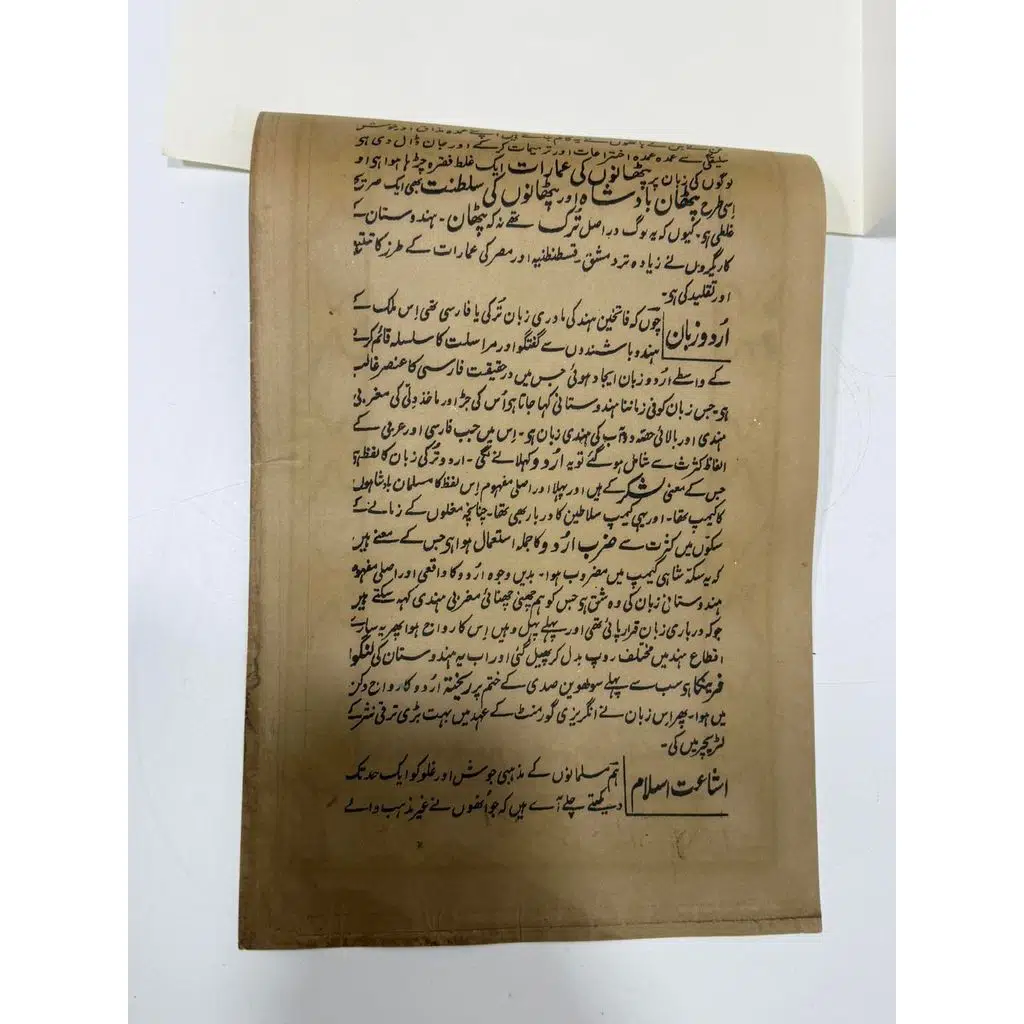 سلیقگی سے عمدہ عمدہ اختراعات اور ترمیمات کرکے اور جان ڈال دی ہی
لوگوں کی زبان پر پٹھانوں کی عمارات ایک غلط فقرہ چڑہا ہوا ہی او
اِسی طرح پٹھان بادشاہ اور پٹھانوں کی سلطنت بھی ایک صریح
غلطی ہو۔ کیوں کہ یہ لوگ دراصل تُرک تھے نہ کہ پٹھان۔ ہندوستان کے
کاریگروں نے زیادہ تر دمشق۔ قسطنطنیہ اور مصر کی عمارات کے طرز کا تتبع
اور تقلید کی ہو۔
اُردو زبان
چوں کہ فاتحین ہند کی مادری زبان تُرکی یا فارسی تھی اِس ملک کے
ہندو باشندوں سے گفتگو اور مراسلت کا سلسلہ قائم کرنے
کے واسطے اُردو زبان ایجاد ہوئی جس میں درحقیقت فارسی کا عنصر غالب
ہو۔ جس زبان کو فی زماننا ہندوستانی کہا جاتا ہی اُس کی جڑ اور ماخذ دِلّی کی مغربی
ہندی اور بالائی حصّہ دوآب کی ہندی زبان ہو۔ اِس میں جب فارسی اور عربی کے
الفاظ کثرت سے شامل ہو گئے تو یہ اُردو کہلانے لگی۔ اردو تُرکی زبان کا لفظ ہی
جس کے معنی لشکر کے ہیں اور پہلا اور اصلی مفہوم اِس لفظ کا مسلمان بادشاہوں
کا کیمپ تھا۔ اور یہی کیمپ سلاطین کا دربار بھی تھا۔ چنانچہ مغلوں کے زمانے کے
سکّوں میں کثرت سے ضرب اُردو کا جملہ استعمال ہوا ہی جس کے معنے ہیں
کہ یہ سکّہ شاہی کیمپ میں مضروب ہوا۔ بدیں وجوہ اردو کا واقعی اور اصلی مفہوم
ہندوستانی زبان کی وہ شق ہی جس کو ہم چھنی چھنائی مغربی ہندی کہہ سکتے ہیں
جو کہ درباری زبان قرار پائی تھی اور پہلے پہل وہیں اِس کا رواج ہوا پھر یہ سارے
اقطاع ہند میں مختلف روپ بدل کر پھیل گئی اور اب یہ ہندوستان کی لنگوا
فرینکا ہی سب سے پہلے سولھویں صدی کے ختم پر ریختہ اُردو کا رواج دکن
میں ہوا۔ پھر اِس زبان نے انگریزی گورمنٹ کے عہد میں بہت بڑی ترقی نثر کے
لٹریچر میں کی۔
اشاعت اسلام
ہم مسلمانوں کے مذہبی جوش اور غلو کو ایک حد تک
دیکھتے چلے آے ہیں کہ جو اُنھوں نے غیر مذہب والے